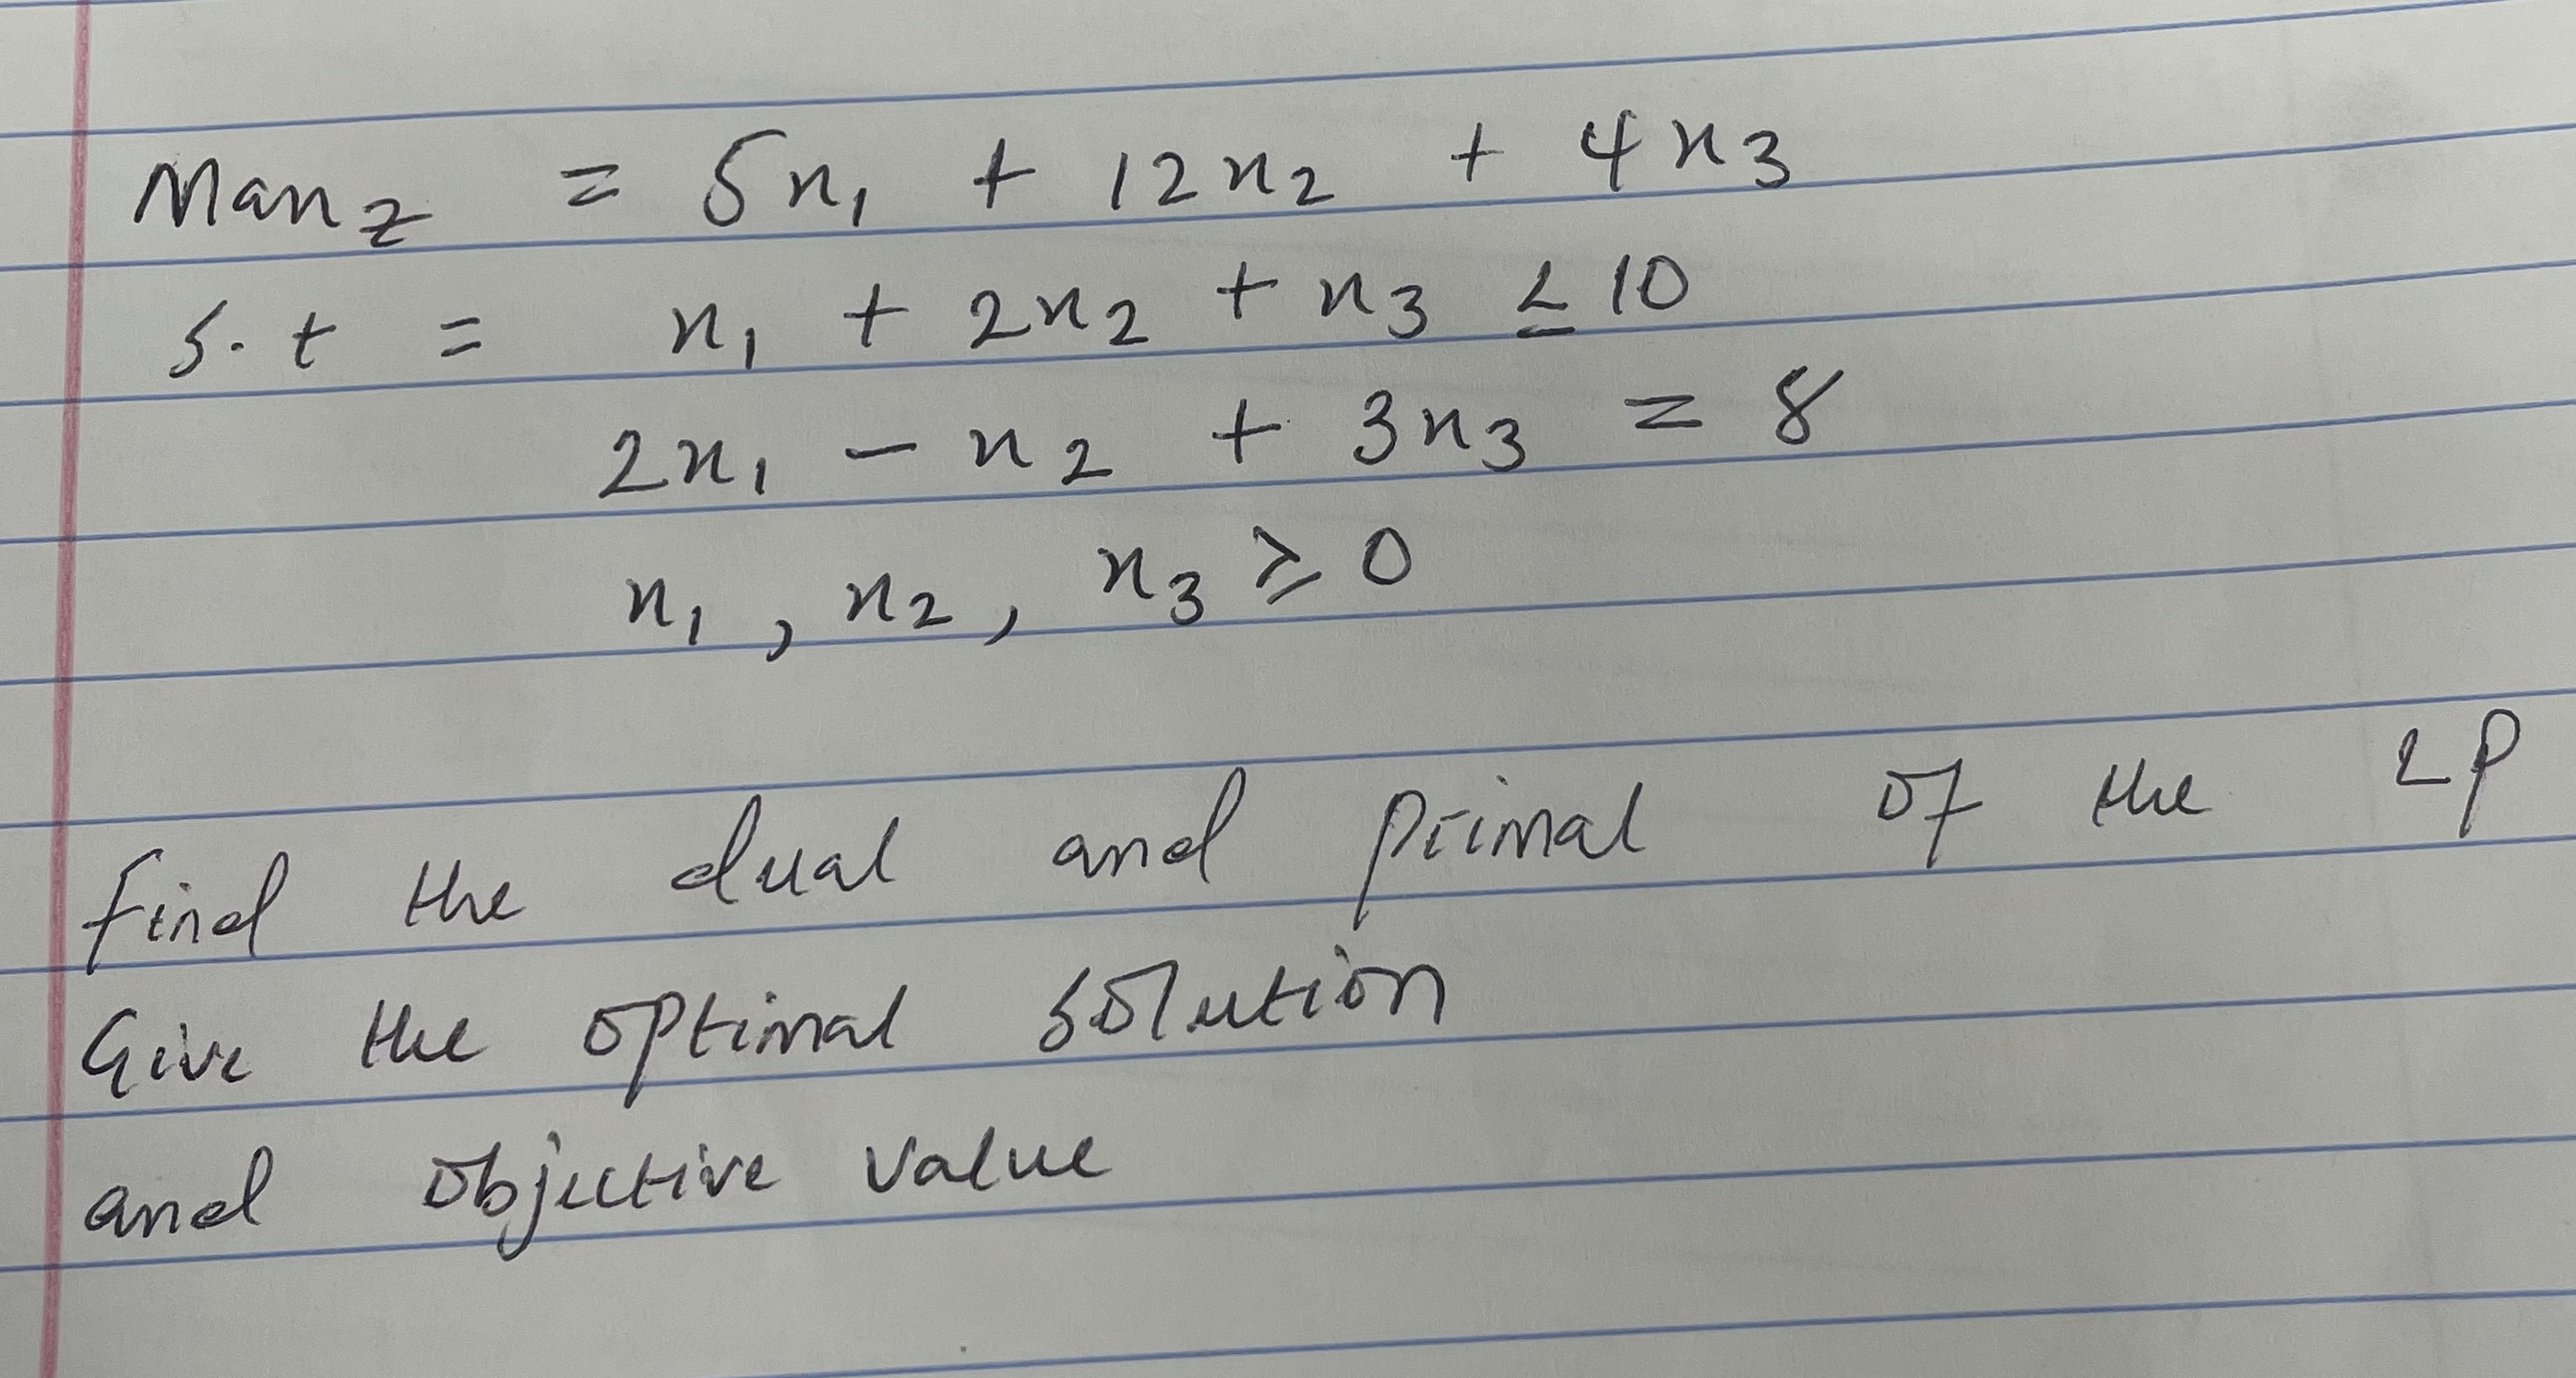 Max z = 5x₁ + 12x₂ + 4x₃
s.t = x₁ + 2x₂ + x₃ ≤ 10
2x₁ - x₂ + 3x₃ = 8
x₁, x₂, x₃ ≥ 0
find the dual and primal of the LP
Give the optimal solution
and objective value